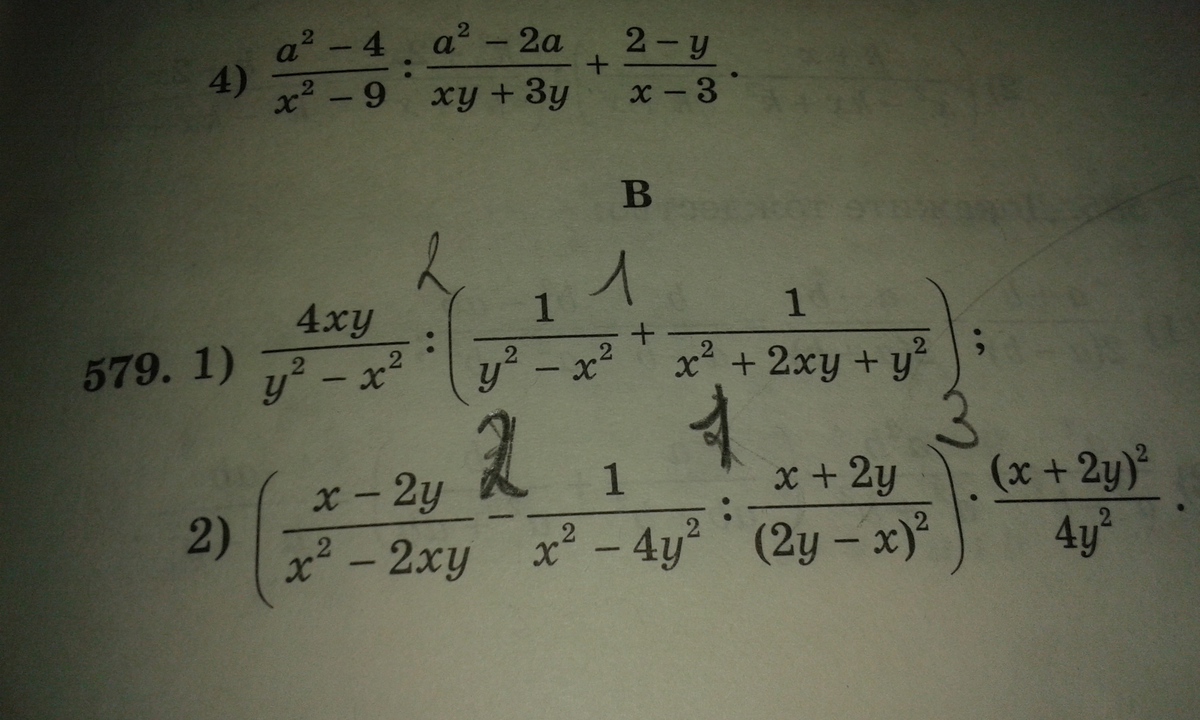 4) (a² − 4)/(x² − 9) : (a² − 2a)/(xy + 3y) + (2 − y)/(x − 3).
В
2 1
579. 1) 4xy/(y² − x²) : (1/(y² − x²) + 1/(x² + 2xy + y²));
2 1 3
2) ((x − 2y)/(x² − 2xy) − 1/(x² − 4y²) : (x + 2y)/(2y − x)²) · (x + 2y)²/4y².